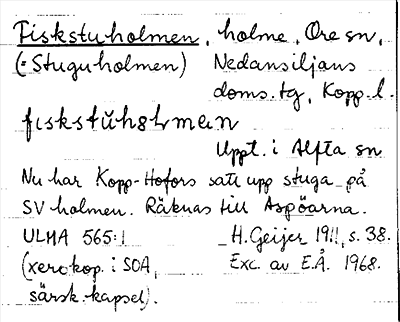 Fiskstuholmen, holme, Ore sn,
(= Stuguholmen) Nedansiljans
doms. tg, Kopp. l.
fɪskstŭhɜlmɛn
Uppt. i Alfta sn
Nu har Kopp-Hofors satt upp stuga på
SV holmen. Räknas till Aspöarna.
ULMA 565:1 H. Geijer 1911, s. 38.
(xerokop. i SOA, Exc. av E.Å. 1968.
särsk. kapsel).